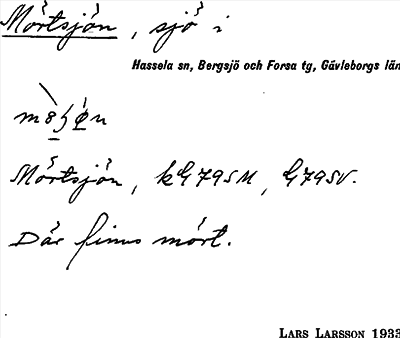 Mörtsjön, sjö i
Hassela sn, Bergsjö och Forsa tg, Gävleborgs län
Mörtsjön, kG79SM, G79SV.
Där finns mört.
LARS LARSSON 1933